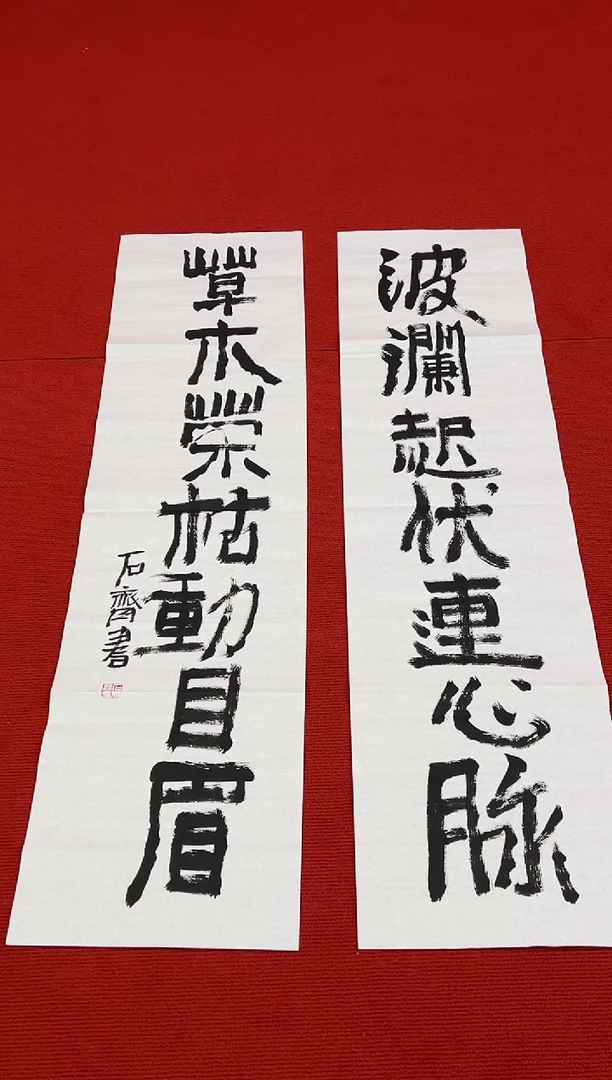 波瀾起伏連心脉
草木榮枯動目眉
石齊書